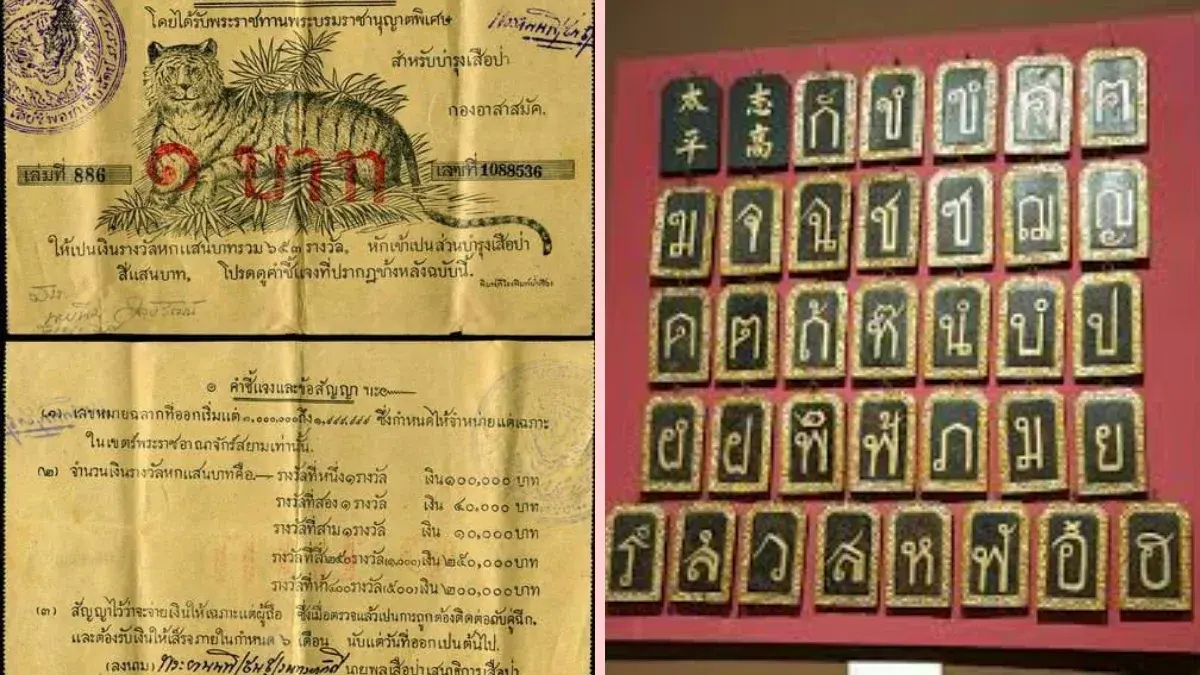 โดยได้รับพระราชทานพระบรมราชานุญาตพิเศษ
สำหรับบำรุงเสือป่า
กองอาสาสมัค.
เล่มที่ 886
๑ บาท
เลขที่ 1088536
ให้เปนเงินรางวัลหกแสนบาทรวม ๖๕๓ รางวัล. หักเข้าเปนส่วนบำรุงเสือป่า
สี่แสนบาท, โปรดดูคำชี้แจงที่ปรากฏข้างหลังฉบับนี้.
๑ คำชี้แจงและข้อสัญญา
(๑) เลขหมายฉลากที่ออกเริ่มแต่ ๑,๐๐๐,๐๐๐ ถึง ๑,๙๙๙,๙๙๙ ซึ่งกำหนดให้จำหน่ายแต่เฉภาะ
ในเขตร์พระราชอาณาจักร์สยามเท่านั้น.
(๒) จำนวนเงินรางวัลหกแสนบาทคือ.— รางวัลที่หนึ่ง ๑ รางวัล เงิน ๑๐๐,๐๐๐ บาท
รางวัลที่สอง ๑ รางวัล เงิน ๔๐,๐๐๐ บาท
รางวัลที่สาม ๑ รางวัล เงิน ๑๐,๐๐๐ บาท
รางวัลที่สี่ ๒๕๐ รางวัล (๑,๐๐๐) เงิน ๒๕๐,๐๐๐ บาท
รางวัลที่ห้า ๔๐๐ รางวัล (๕๐๐) เงิน ๒๐๐,๐๐๐ บาท
(๓) สัญญาไว้ว่าจะจ่ายเงินให้เฉภาะแต่ผู้ถือ ซึ่งเมื่อตรวจแล้วเปนการถูกต้องติดต่อกับคู่ฉีก.
และต้องรับเงินให้เสร็จภายในกำหนด ๖ เดือน นับแต่วันที่ออกเปนต้นไป.
(ลงนาม) นายพลเสือป่าเสนาธิการเสือป่า
太平 志高 ก ขํ ข ค ฅ
ฆ จ ฉ ช ซ ฌ ญ
ด ต ถ ท นํ บํ ป
ผ ฝ พ ฟ ภ ม ย
ร ล ว ส ห ฬ อ ฮ